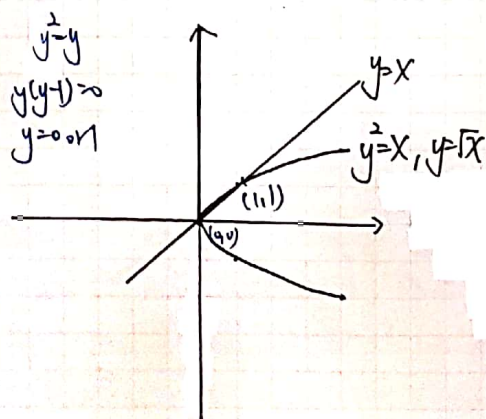 y²=y
y(y-1)=0
y=0 or 1
y=x
y²=x, y=√x
(1,1)
(0,0)